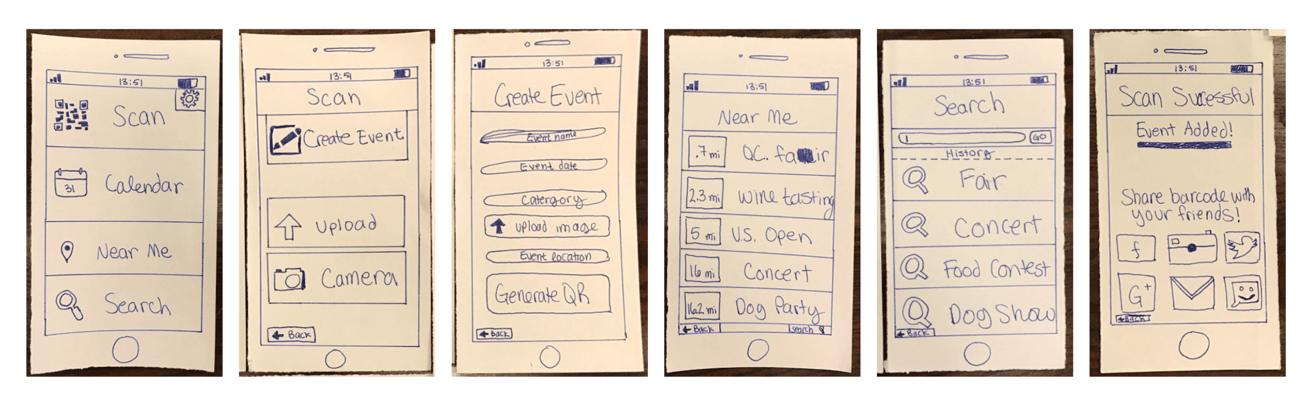 13:51
Scan
31
Calendar
Near Me
Search
13:51
Scan
Create Event
Upload
Camera
Back
13:51
Create Event
Event name
Event date
Catergory
upload image
Event location
Generate QR
Back
13:51
Near Me
.7 mi Q.C. fair
2.3 mi wine tasting
5 mi U.S. Open
16 mi Concert
16.2 mi Dog Party
Back search
13:51
Search
GO
History
Fair
Concert
Food Contest
Dog Show
Back
13:51
Scan Sucessful
Event Added!
Share barcode with
your friends!
f
G+
Back